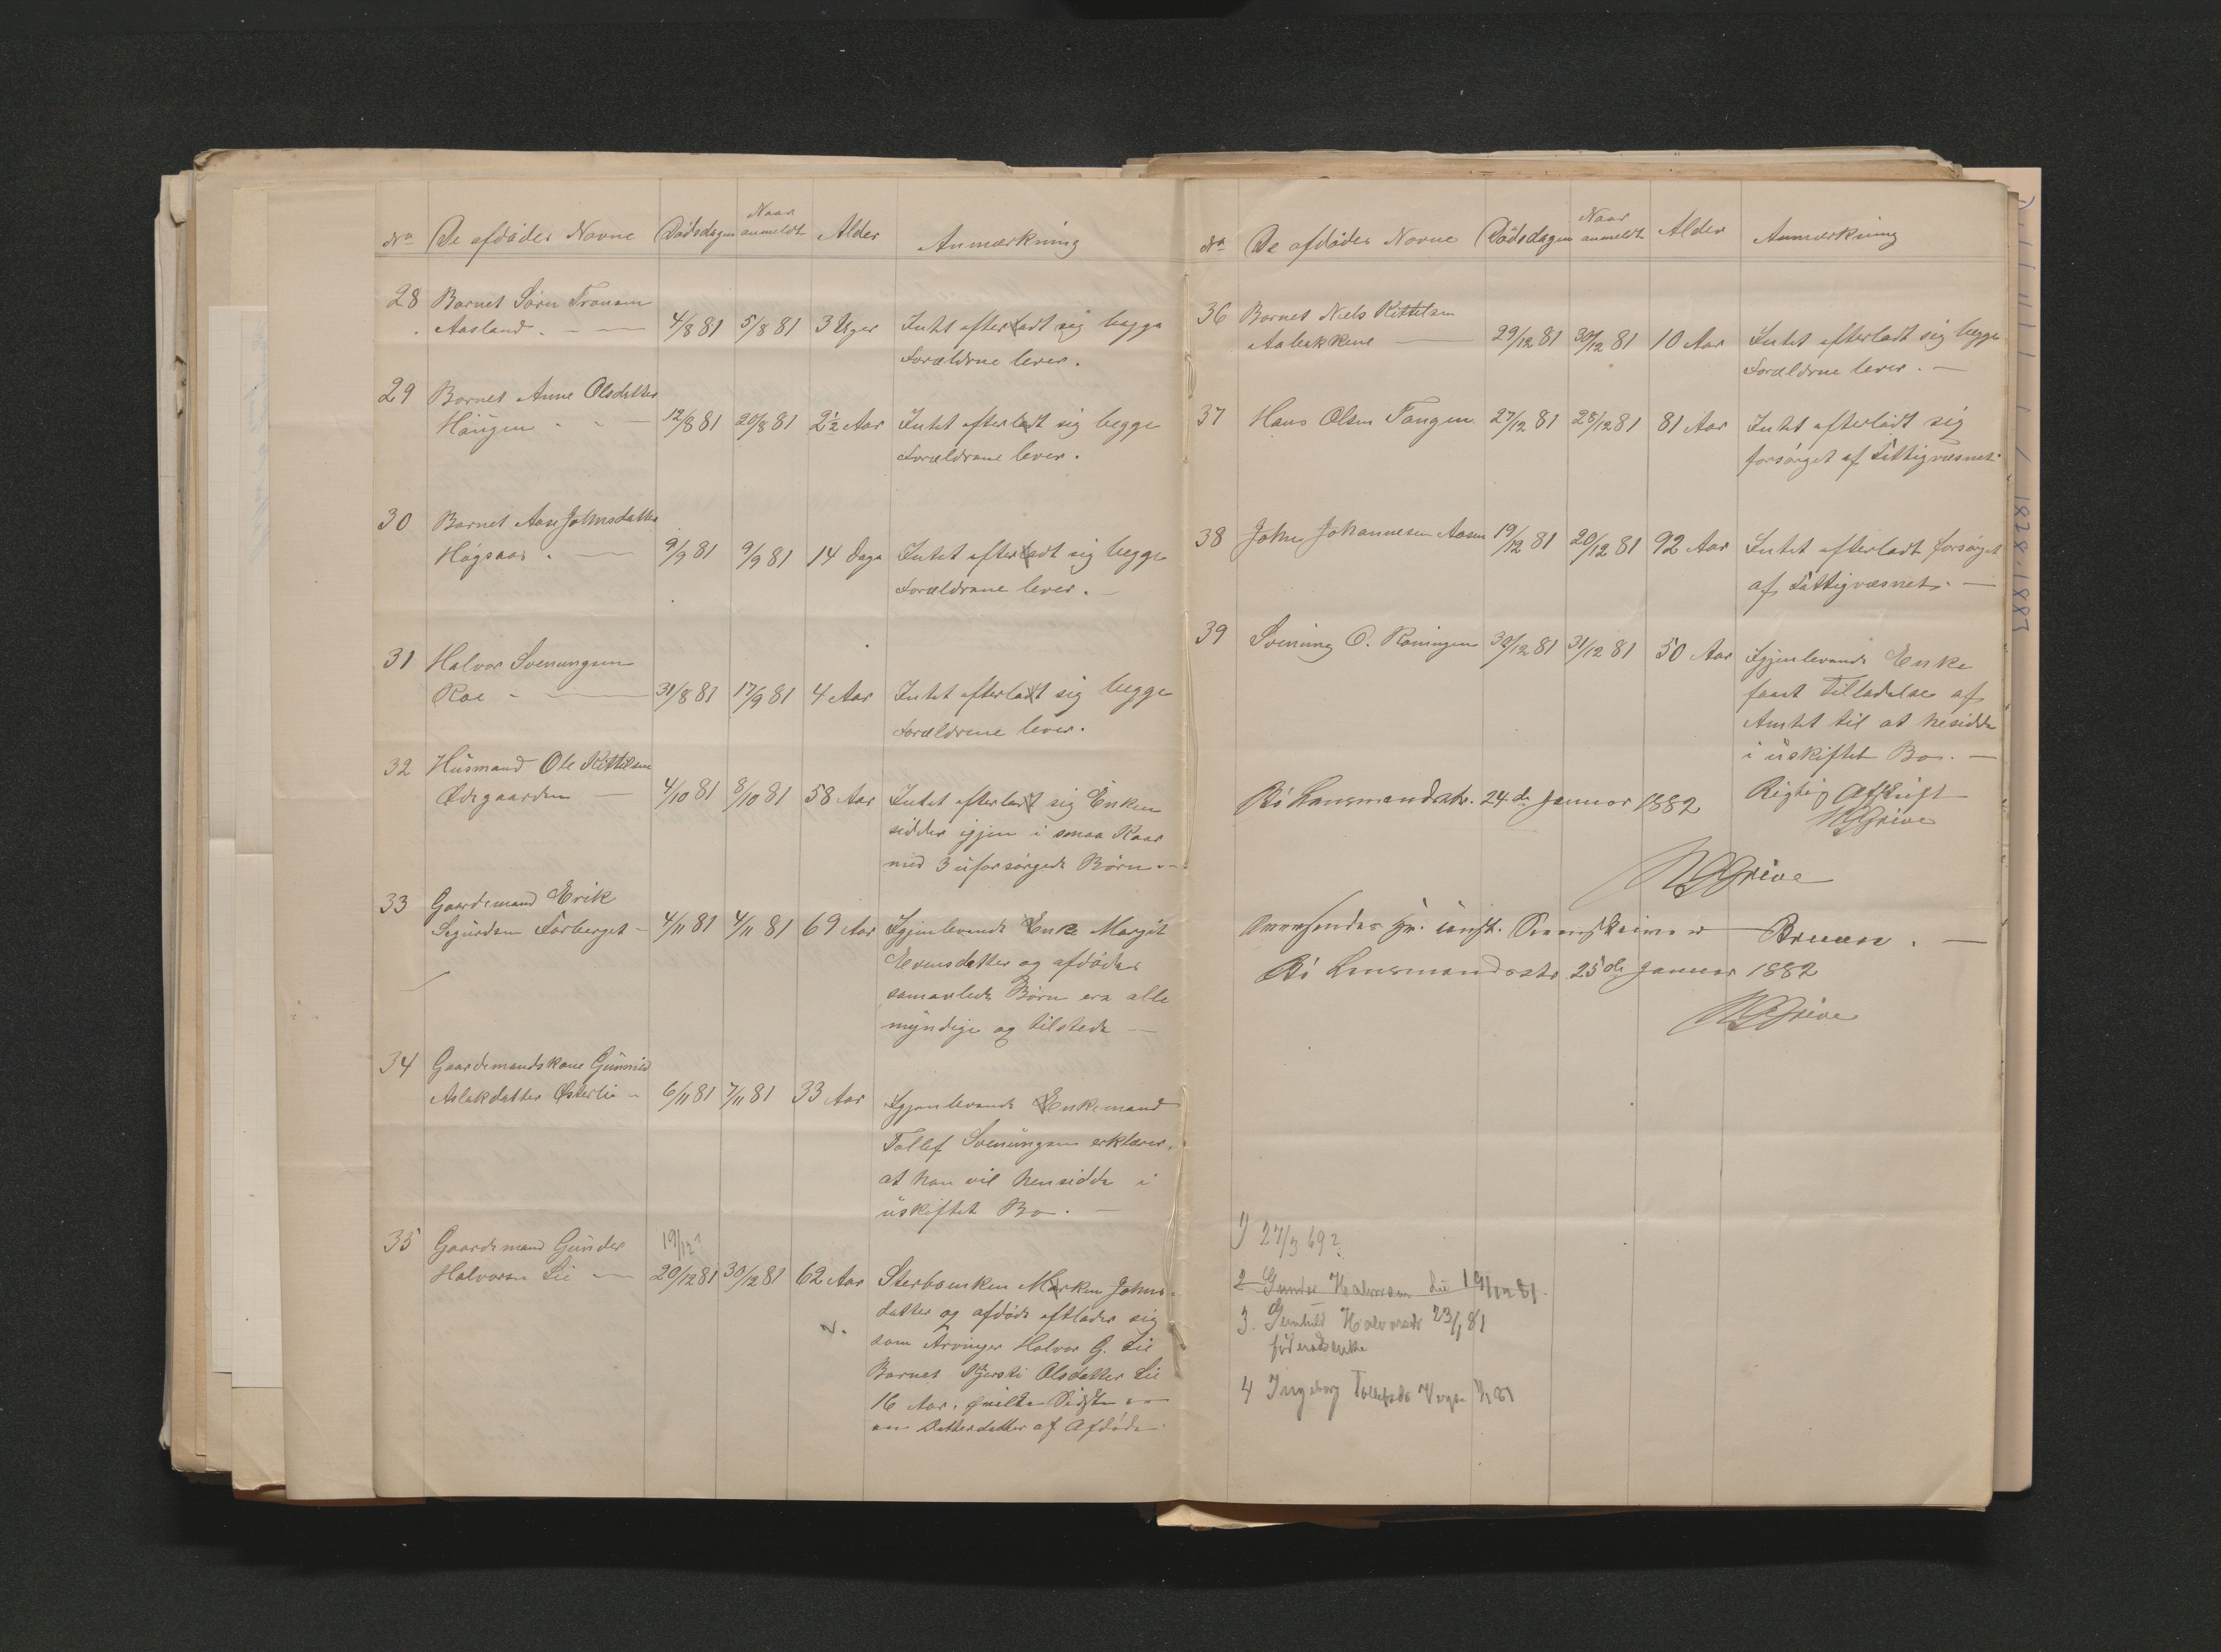 No De afdødes Navne Dødsdagen Naar anmeldt Alder Anmærkning
28 Barnet Sørn Transen
Aasland. 4/8 81 5/8 81 3 Uger Intet efterladt sig begge
Forældrne lever.
29 Barnet Anne Olsdatter
Haugen 12/8 81 20/8 81 2½ Aar Intet efterladt sig begge
Forældrene lever.
30 Barnet Aase Johnsdatter
Høgsaas. 9/9 81 9/9 81 14 Dage Intet efterladt sig begge
Forældrane lever.
31 Halvor Svenungsen
Roe 31/8 81 17/9 81 4 Aar Intet efterladt sig begge
Forældrene lever.
32 Husmand Ole Kittilsen
Ødegaarden 4/10 81 8/10 81 58 Aar Intet efterladt sig Enken
sidder igjen i smaa Kaar
med 3 uforsørgede Børn.
33 Gaardemand Erik
Sigurdsen Forberget 4/11 81 4/11 81 69 Aar Igjenlevende Enke Margit
Evensdatter og afdødes
samavlede Børn era alle
myndige og tilstede
34 Gaardemandskone Gunnild
Aslakdatter Østerlie 6/11 81 7/11 81 33 Aar Igjenlevende Enkemand
Tollef Svenungsen erklærer,
at han vil hensidde i
uskiftet Bo.
35 Gaardemand Gunder 19/12?
Halvorsen Lie 20/12 81 30/12 81 62 Aar Sterboenken Marken Johns-
datter og afdøde eftlader sig
som Arvinger Halvor G. Lie
Barnet Kjersti Olsdatter Lie
16 Aar, hvilke Sidste er
en Datterdatter af Afdøde
No De afdødes Navne Dødsdagen Naar anmeldt Alder Anmærkning
36 Barnet Niels Kittilsen
Aabakkene 29/12 81 30/12 81 10 Aar Intet efterladt sig begge
Forældrne lever.
37 Hans Olsen Tangen 27/12 81 28/12 81 81 Aar Intet efterladt sig
forsørget af Fattigvæsnet.
38 John Johannesen Aasen 19/12 81 20/12 81 92 Aar Intet efterladt forsørget
af Fattigvæsnet.
39 Svenung O. Roningen 30/12 81 31/12 81 50 Aar Igjenlevende Enke
faaet Tilladelse af
Amtet til at hesidde
i uskiftet Bo.
Bø Lensmandsstr. 24de Januar 1882 Rigtig Afskrift
Grive
Grive
Oversendes Hr. const. Sorenskriver Bruun.
Bø Lensmandsstr 25de Januar 1882
Grive
1) 27/3 69?
2 Gunder Halvorsen Lie 19/12 81.
3. Gunhild Halvorsdr 23/1 81
føderaadsenke
4 Ingeborg Tollefsdr 1/1 81